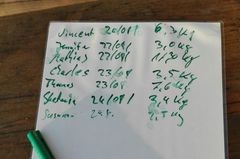 Vincent 20/08/ 6.3 kg
Jennifer 22/08/ 3,0 kg
Mathias 22/08/ 1,30 kg
Charles 23/08 3,5 kg
Thomas 23/08 7.6 kg
24/08/ 3,4 kg
Susanna 24.8. 2.5 kg